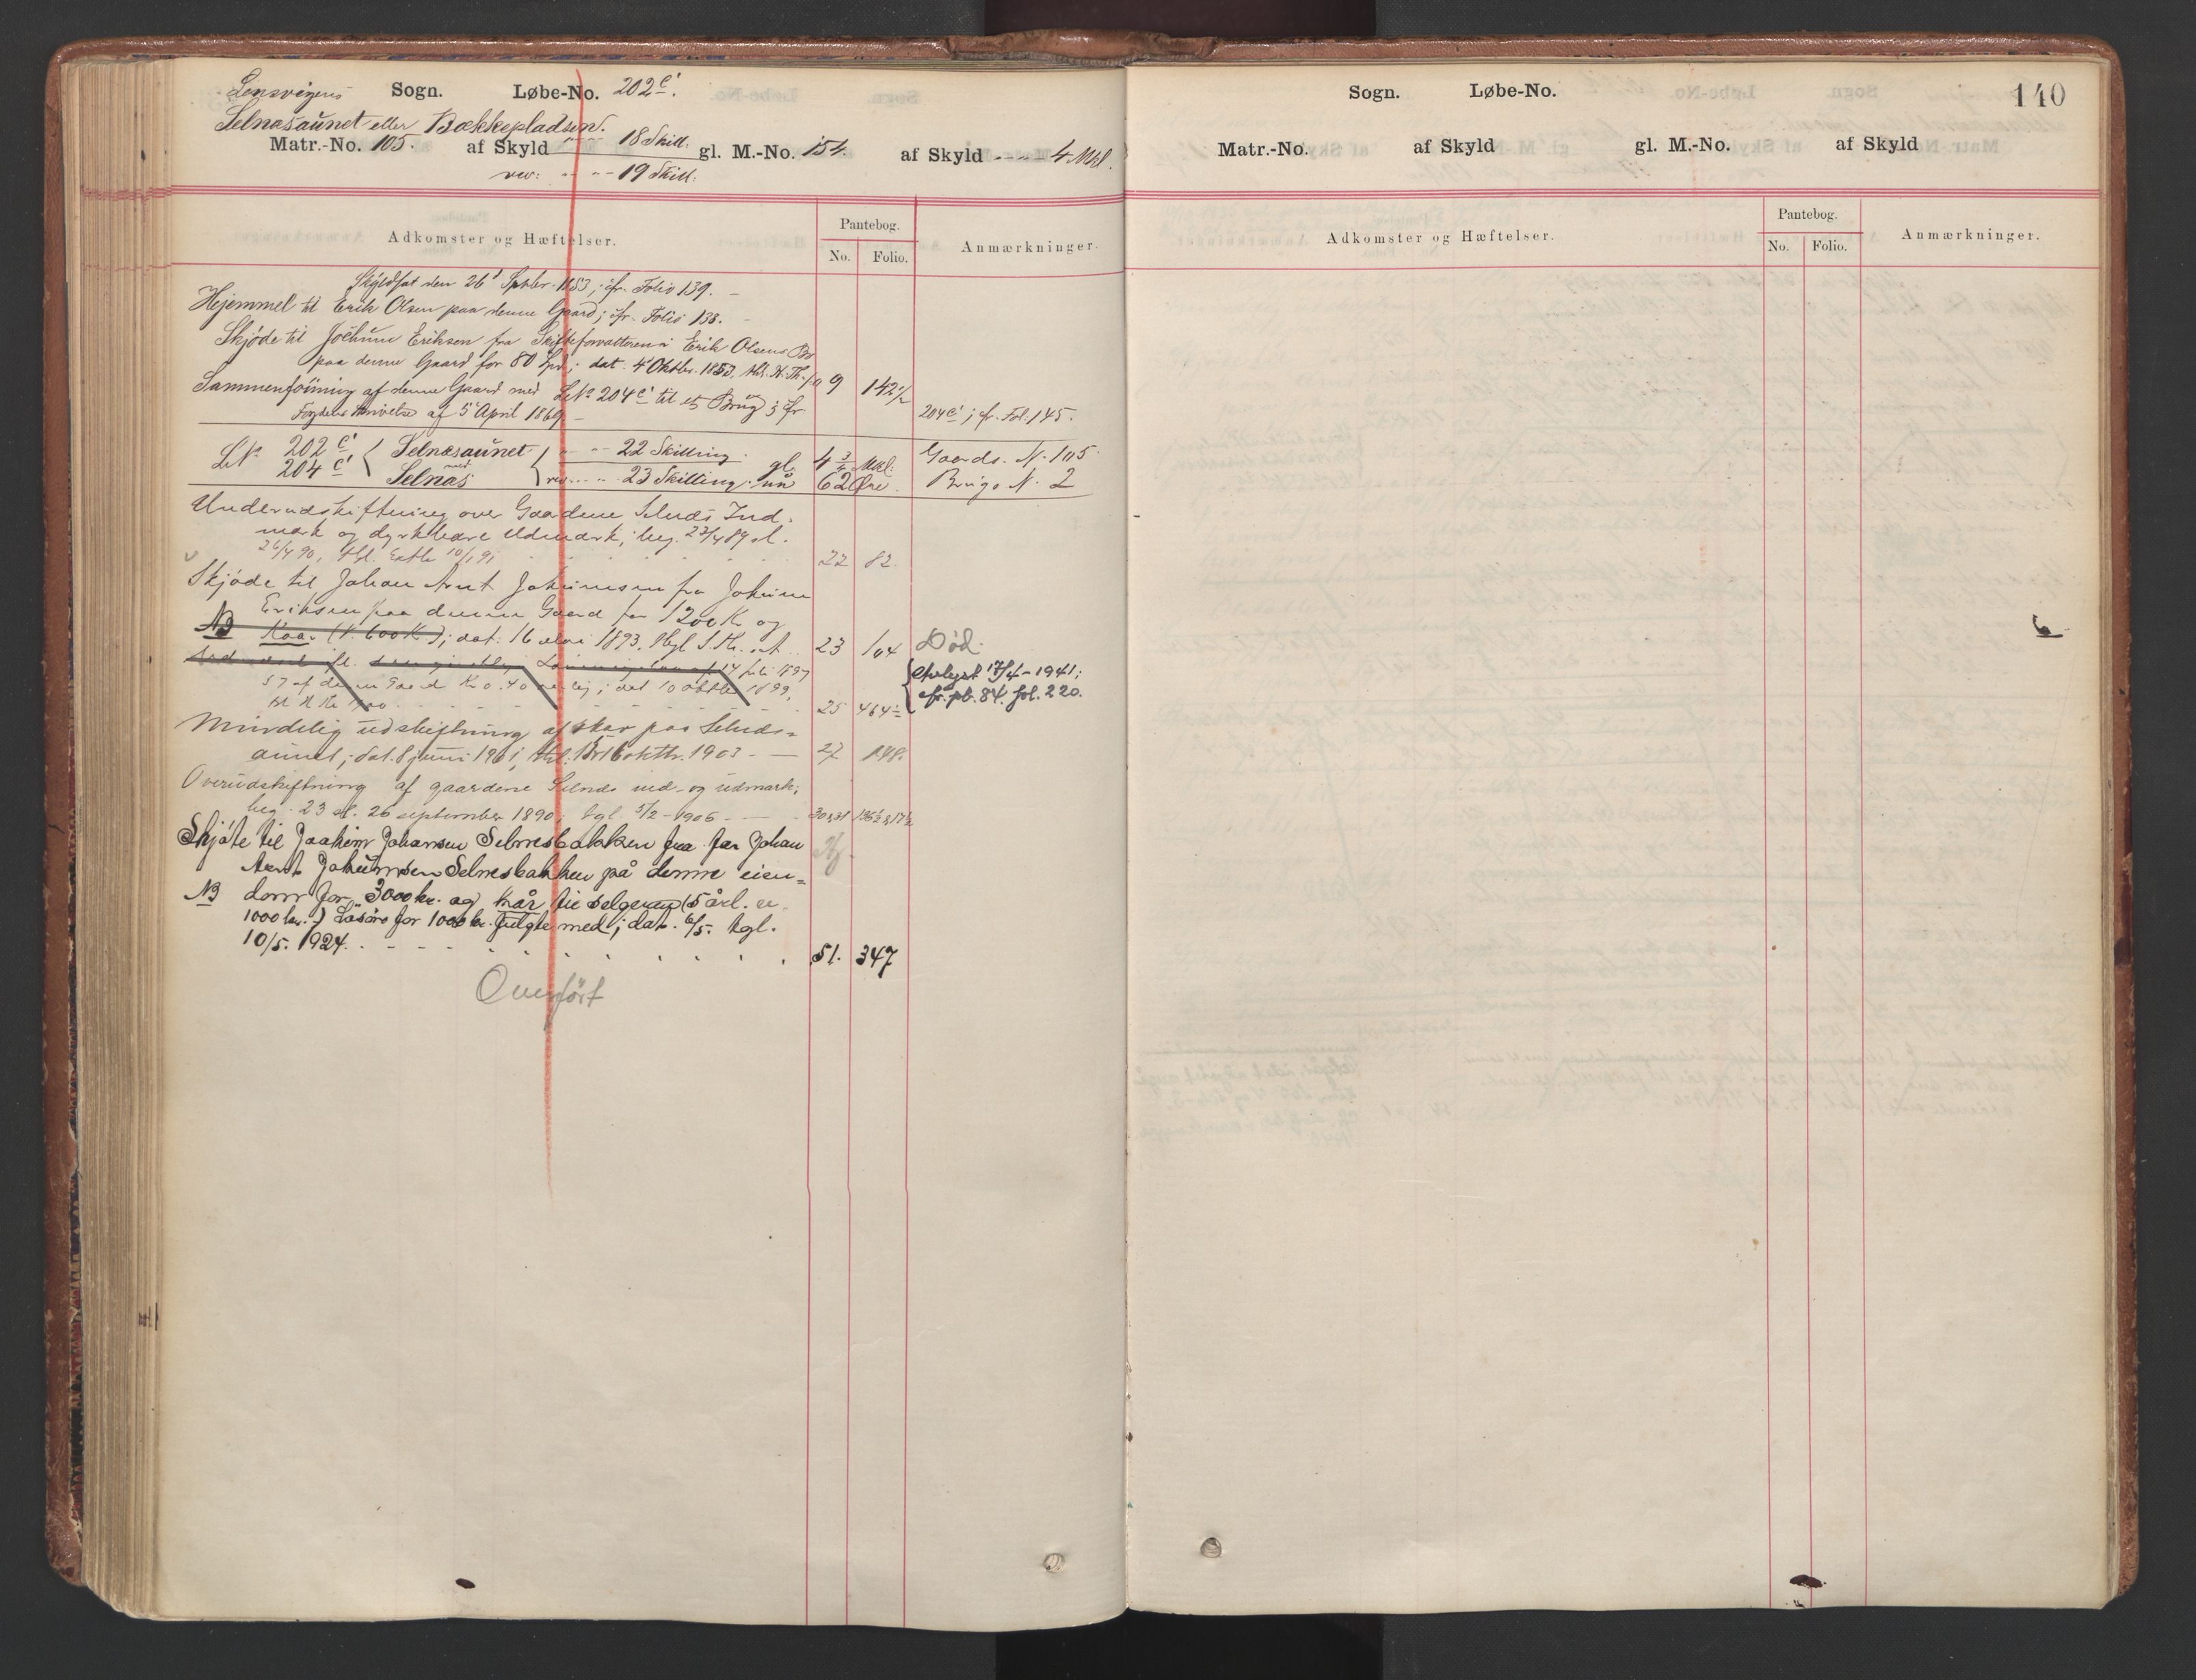 Lensvigens Sogn. Løbe-No. 202 c¹.
Selnæsaunet eller Bækkepladsen.
Matr.-No. 105. af Skyld 18 Skill. gl. M.-No. 154. af Skyld 4 Mkl.
rev: 19 Skill.
Adkomster og Hæftelser. Pantebog. No. Folio. Anmærkninger.
Skyldsat den 26 Septbr. 1853; cfr. Folio 139.
Hjemmel til Erik Olsen paa denne Gaard; cfr. Folio 138.
Skjøde til Jochum Eriksen fra Skifteforvalteren i Erik Olsens Bo
paa denne Gaard for 80 Spd; dat. 4 Oktbr. 1853, 9 142½
Sammenføining af denne Gaard med LNo 204 c¹ til et Brug; cfr
Fogdens Skrivelse af 5 April 1869. 204 c¹; cfr. Fol. 145.
LNo 202 c¹ Selnæsaunet 22 Skilling. gl. 4 3/4 Mkl. Gaards. N. 105.
204 c¹ med Selnæs rev. 23 Skilling. nu 62 Øre. Brugs N. 2
Underudskiftning over Gaardene Selnæs Ind-
mark og dyrkbare Udmark, beg. 23/4 89 sl.
26/4 90, 22 82.
Skjøde til Johan Arnt Jokumsen fra Jokum
Eriksen paa denne Gaard for 1200 K og
NB Kaar (V. 600 K); dat. 16 1893. 23 104 Død.
14 juli 1897
57 af denne Gaard Kr 0.40 aarlig; dat 10 oktbr 1899, Avlyst 17/4-1941;
25 464½ cfr. pb. 84. fol. 220.
Mindelig udskiftning af skov paa Selnæs-
aunet; dat. 8 juni 1901, 16 oktbr. 1903. 27 148.
Overudskiftning af gaardene Selnæs ind- og udmark;
beg. 23 sl. 26 september 1890, tgl 5/2-1906
Skjøte til Joakim Johansen Selnesbakken fra far Johan
Arnt Jokumsen Selnesbakken på denne eien-
NB dom for 3000 kr. og kår til selgeren (5 årl. er
1000 kr.) Løsøre for 1000 kr. fulgte med; dat. 6/5. tgl.
10/5. 1924. 51. 347
Overført
Sogn. Løbe-No. 140
Matr.-No. af Skyld gl. M.-No. af Skyld
Adkomster og Hæftelser. Pantebog. No. Folio. Anmærkninger.